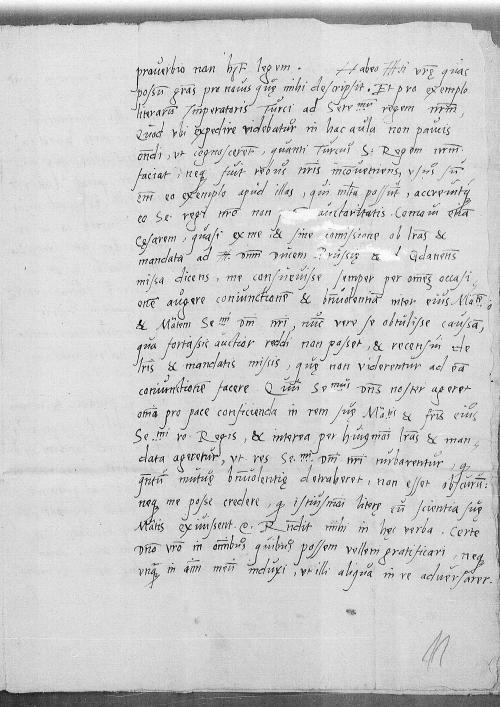 prouerbio non hȝ legem. Habeo Illti vrę quas
possū grās pro nouis quę mihi descripsit. Et pro exemplo
literarū Imperatoris Turci ad Sere.muȝ regem nrm̄.
Quod vbi expedire videbatur in hac aula non paucis
ondi, vt cognosceret, quanti Turcus S. Regem nrm̄
faciat, neqȝ fuit rebus nr̄is incoueniens, vsus su
em eo exemplo apud illas, qui mlta possūt, accreuitqȝ
eo Se. regi nro non auctoritatis. Comoui etiā
Cęsarem, quasi ex me & sine comissione ob lras &
mandata ad Ill. Dnm̄ Ducem Prussię & Gdanens̄
missa dicens, me consueuisse semper per omēs occasi
onē augere coniunctionē & bn̄uolentiā inter eius Matē
& Mātem Se.mi Dn̄i nri, nūc vero se obtulisse causā,
qua fortassis auctior reddi non posset, & recensui de
lris & mandatis missis, quę non viderentur ad eā
coniunctionē facere Quū Se.mus Dn̄s noster ageret
om̄ia pro pace conficienda in rem suę Mātis & fris eius
Se.mi ro. Regis, & interea per huiusmōi lras & man
data ageretur, vt res Se.mi Dn̄i nri turbarentur, qȝ
quātū mutuę bn̄uolentię detraheret, non esset obscurū:
neqȝ me posse credere, qȝ istiusmōi literę cū scientia suę
Mātis exiuissent. &c. Rn̄dit mihi in hęc verba. Certe
Dn̄o vrō in omībus quibus possem vellem gratificari, neqȝ
vnqȝ in aīm meū induxi, vt illi aliqua in re aduersarer.